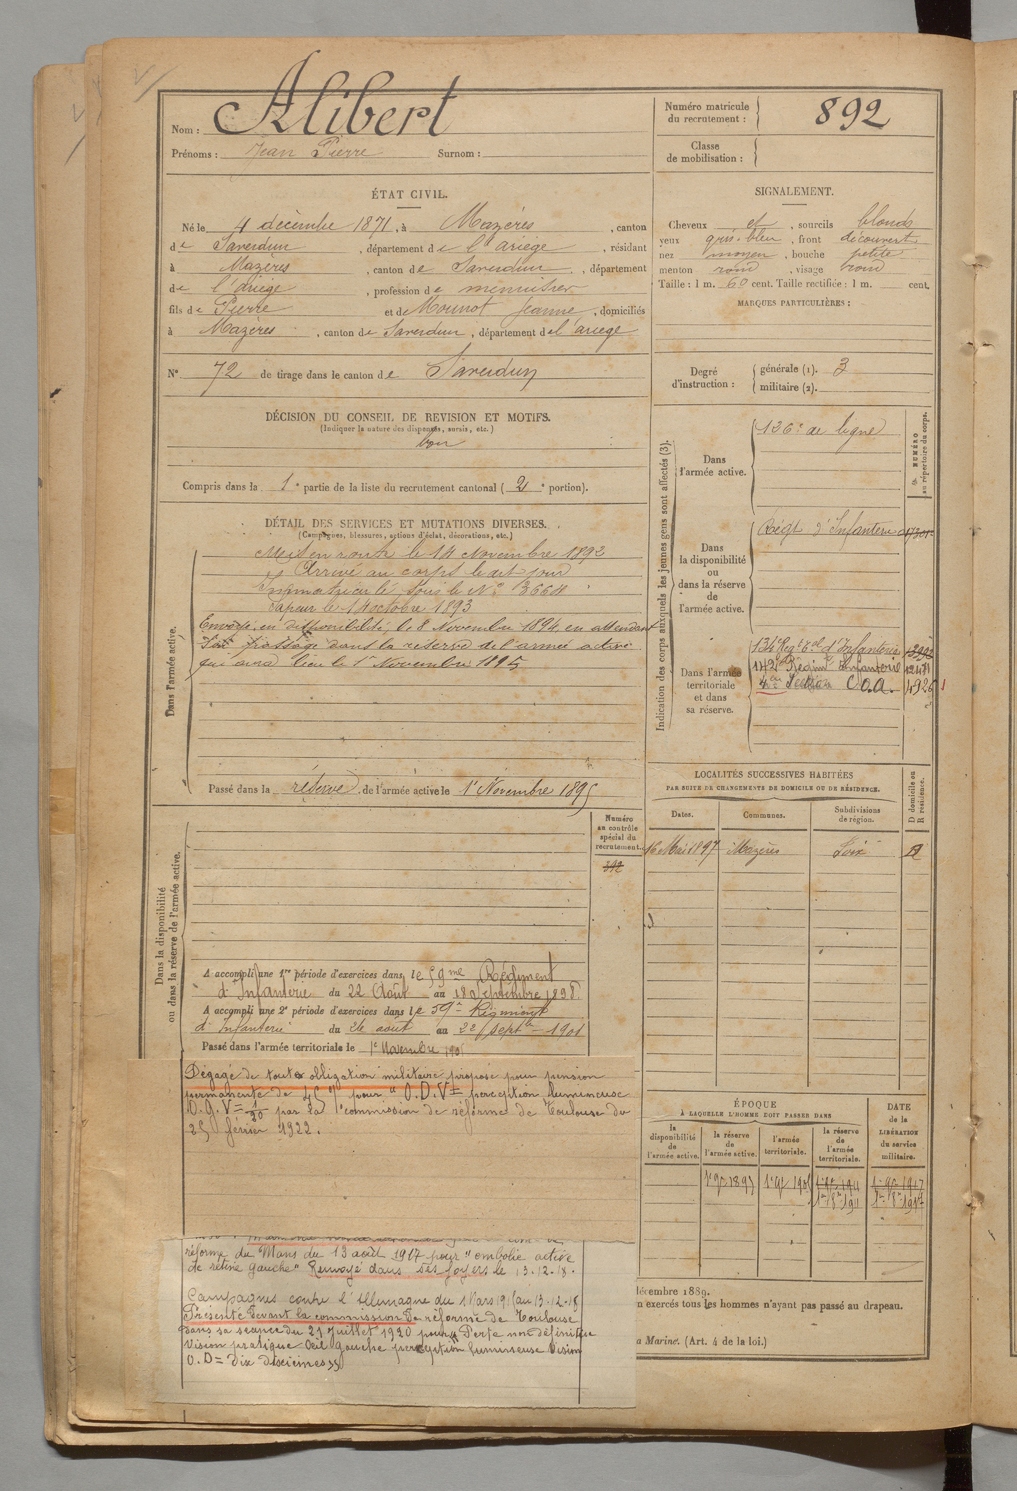 Nom : Alibert
Prénoms : Jean Pierre Surnom :
Numéro matricule
du recrutement : 892
Classe
de mobilisation :
ÉTAT CIVIL.
Né le 4 décembre 1871, à Mazères, canton
de Saverdun, département de l'ariège, résidant
à Mazères, canton de Saverdun, département
de l'ariège, profession de menuisier
fils de Pierre et de Mounot Jeanne, domiciliés
à Mazères, canton de Saverdun, département de l'ariège
N° 72 de tirage dans le canton de Saverdun
SIGNALEMENT.
Cheveux et, sourcils blonds
yeux gris-bleu, front découvert
nez moyen, bouche petite
menton rond, visage rond
Taille : 1 m. 60 cent. Taille rectifiée : 1 m. cent.
MARQUES PARTICULIÈRES :
Degré
d'instruction :
générale (1). 3
militaire (2).
DÉCISION DU CONSEIL DE REVISION ET MOTIFS.
(Indiquer la nature des dispenses, sursis, etc.)
bon
Compris dans la 1e partie de la liste du recrutement cantonal (2e portion).
DÉTAIL DES SERVICES ET MUTATIONS DIVERSES.
(Campagnes, blessures, actions d'éclat, décorations, etc.)
Dans l'armée active.
Mis en route le 14 Novembre 1892
Arrivé au corps le dit jour
Immatriculé sous le N° 3664
Sapeur le 1 octobre 1893
Envoyé en disponibilité, le 8 Novembre 1894 en attendant
Son passage dans la réserve de l'armée active
qui aura lieu le 1er Novembre 1895
Passé dans la réserve de l'armée active le 1er Novembre 1895
Indication des corps auxquels les jeunes gens sont affectés (3).
NUMÉRO
au répertoire du corps.
Dans
l'armée active.
136e de ligne
Dans
la disponibilité
ou
dans la réserve
de
l'armée active.
Régt d'Infanterie
Dans l'armée
territoriale
et dans
sa réserve.
134e Régt Tal d'Infanterie
142e Régim Infanterie
Section C.O.A.
LOCALITÉS SUCCESSIVES HABITÉES
PAR SUITE DE CHANGEMENTS DE DOMICILE OU DE RÉSIDENCE.
D domicile ou
R résidence.
Dates. Communes. Subdivisions
de région.
16 Mai 1897 Mazères Foix
Dans la disponibilité
ou dans la réserve de l'armée active.
Numéro
au contrôle
spécial du
recrutement.
392
A accompli une 1re période d'exercices dans le 59me Régiment
d'Infanterie du 22 Août au 18 Septembre 1898
A accompli une 2e période d'exercices dans le 59e Régiment
d'Infanterie du 26 août au 22 Septbre 1901
Passé dans l'armée territoriale le 1er Novembre 1905
Dégagé de toute obligation militaire propose pour pension
permanente de 45 % pour " O.D.V= perception lumineuse
O.G. V= 1/20 par la commission de réforme de Toulouse du
25 février 1922.
réforme du Mans du 13 août 1917 pour "embolie active
de rétine gauche" Renvoyé dans ses foyers le 13-12-18.
Campagnes contre l'Allemagne du 1 Mars 191 au 13-12-18
Présenté devant la commission de réforme de Toulouse
dans sa séance du 21 juillet 1920 pour "Perte non définitive
vision pratique œil gauche perception lumineuse Vision
O.D = dix dixièmes"
ÉPOQUE
À LAQUELLE L'HOMME DOIT PASSER DANS
DATE
de la
LIBÉRATION
du service
militaire.
la
disponibilité
de
l'armée active.
la réserve
de
l'armée active.
l'armée
territoriale.
la réserve
de
l'armée
territoriale.
décembre 1889.
n exercés tous les hommes n'ayant pas passé au drapeau.
a Marine. (Art. 4 de la loi.)